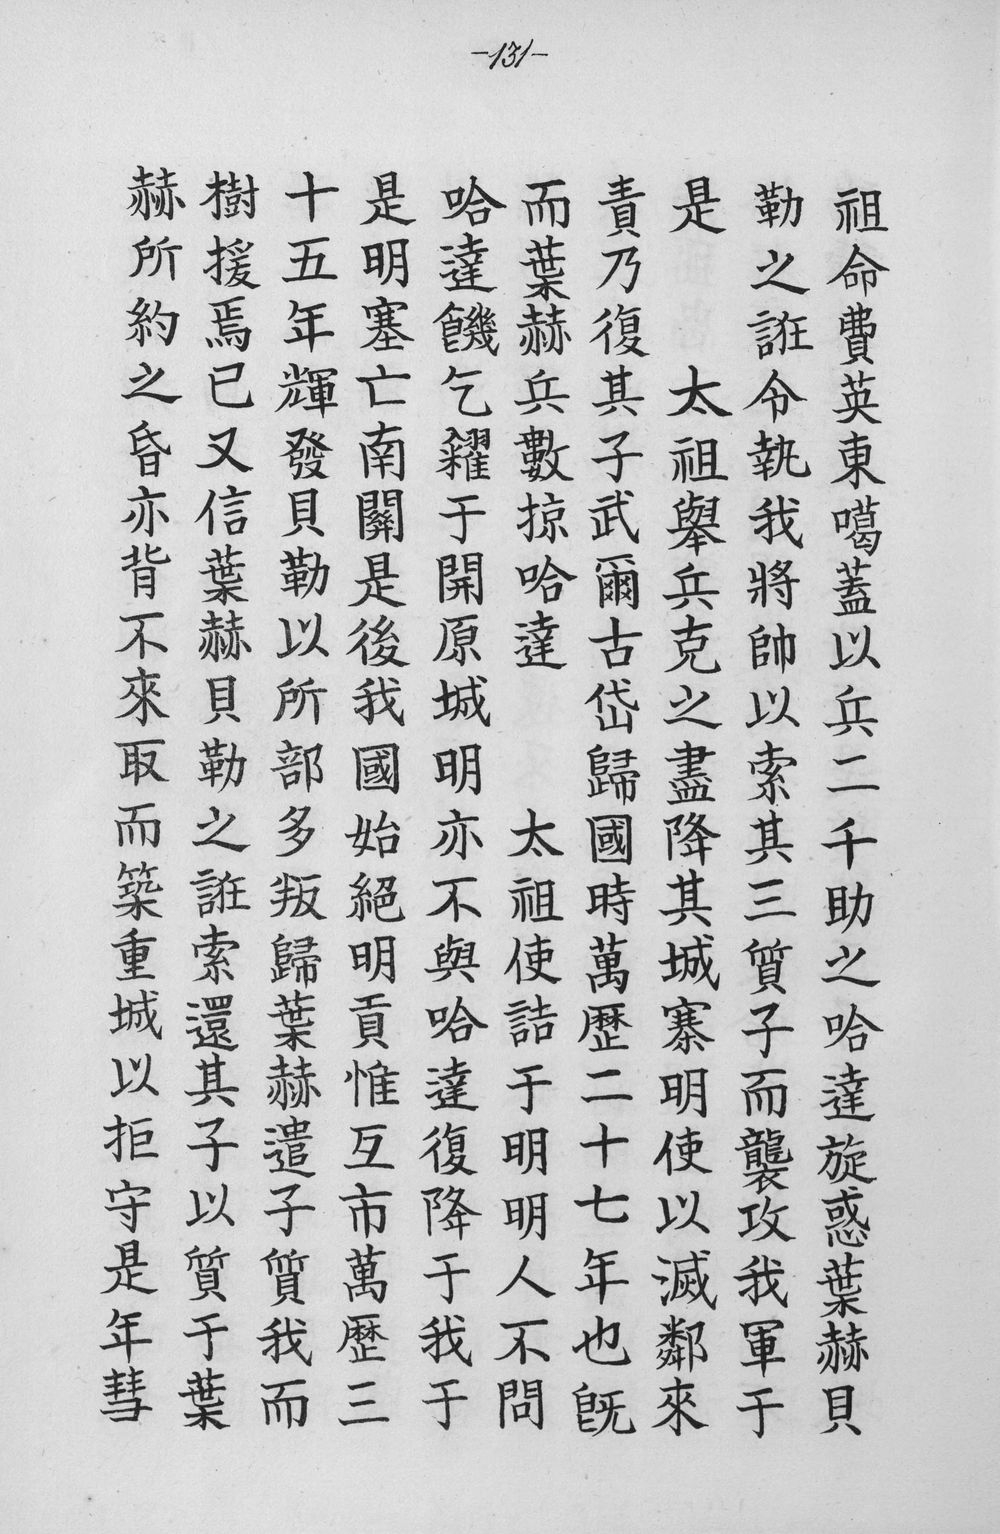 -131-
祖命費英東噶蓋以兵二千助之哈達旋惑葉赫貝
勒之誑令執我將帥以索其三質子而襲攻我軍于
是　太祖舉兵克之盡降其城寨明使以滅鄰來
責乃復其子武爾古岱歸國時萬歷二十七年也旣
而葉赫兵數掠哈達　太祖使詰于明明人不問
哈達饑乞糴于開原城明亦不與哈達復降于我于
是明塞亡南關是後我國始絕明貢惟互市萬歷三
十五年輝發貝勒以所部多叛歸葉赫遣子質我而
樹援焉已又信葉赫貝勒之誑索還其子以質于葉
赫所約之昏亦背不來取而築重城以拒守是年彗